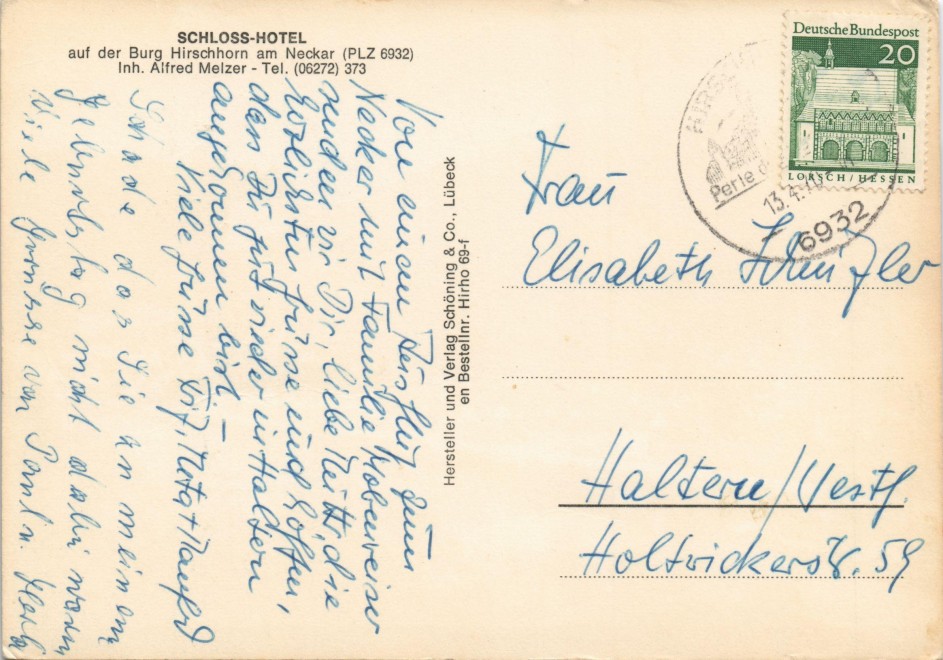 SCHLOSS-HOTEL
auf der Burg Hirschhorn am Neckar (PLZ 6932)
Inh. Alfred Melzer - Tel. (06272) 373
Von einem Ausflug zum
Neckar mit Familie
senden wir Dir, liebe Mutti die
herzlichsten Grüsse und hoffen,
dass Du gut wieder in Haltern
angekommen bist.
Viele Grüsse
Schade das Sie an meinem
Geburtstag nicht dabei waren
Viele Grüsse von
Hersteller und Verlag Schöning & Co., Lübeck
en Bestellnr. Hirho 69-f
Deutsche Bundespost
20
LORSCH/HESSEN
Perle
13.4.70
6932
Frau
Elisabeth
Haltern/Westf.
Holtwickerstr. 59